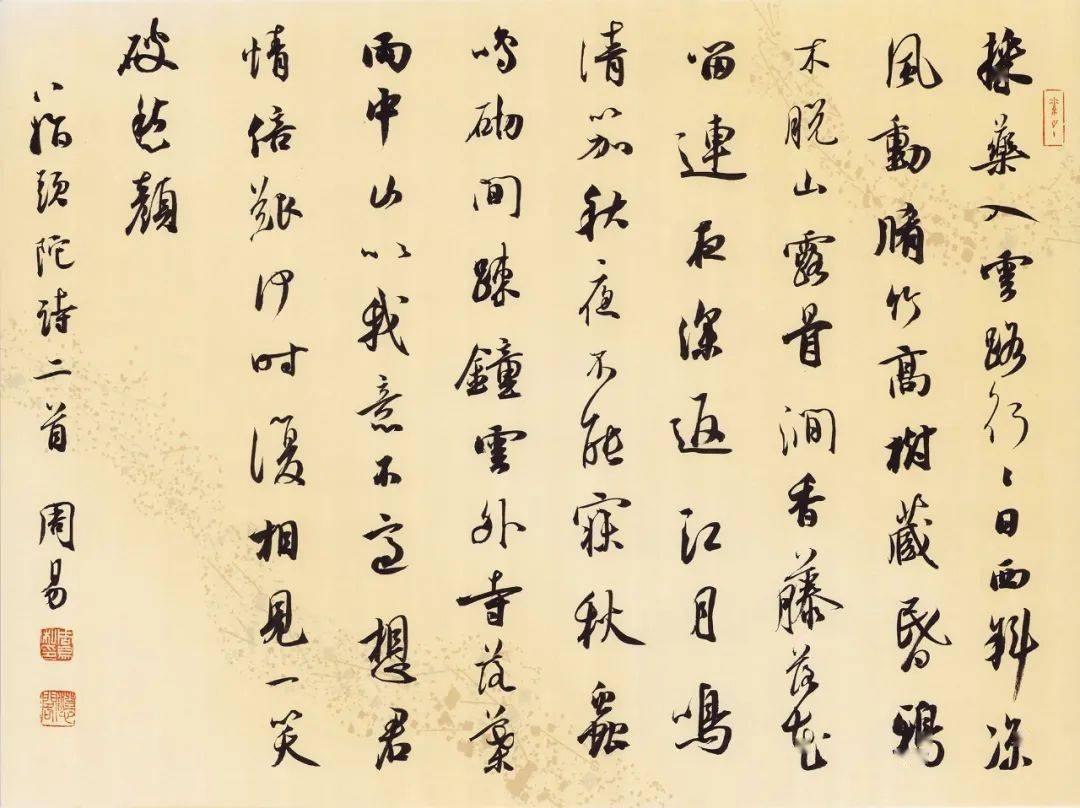 採藥入雲路行〻日西斜涼
風動脩竹高樹藏昏鴉
木脫山露骨澗香藤落花
留連夜深返江月鳴
清笳秋夜不能寐秋蟲
鳴砌間疎鐘雲外寺落葉
雨中山以我意不適想君
情倍艱何时復相見一笑
破愁顏
八指頭陀詩二首 周易